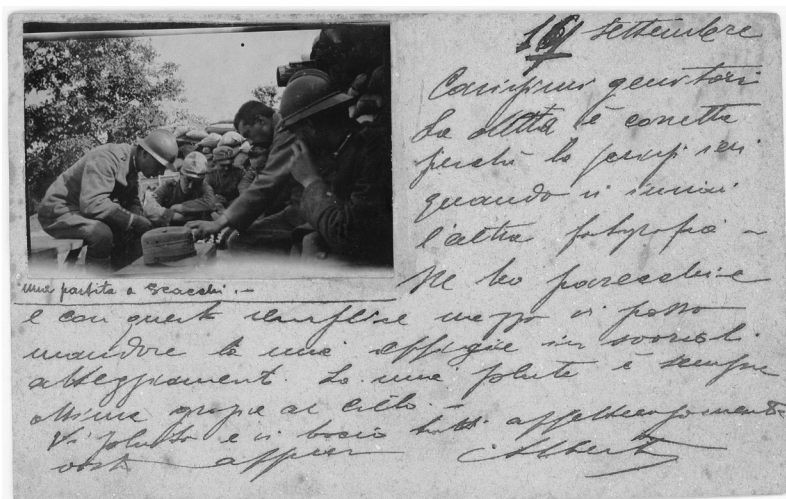 16 settembre
Carissimi genitori
La data è corretta
perchè la scrissi ieri
quando vi inviai
l'altra fotografia –
Ne ho parecchie
una partita a scacchi. –
e con questo semplice mezzo vi posso
mandare la mia effigie in svariati
atteggiamenti. La mia salute è sempre
ottima grazie al cielo. –
Vi saluto e vi bacio tutti affettuosamente
vostro aff
Alberto